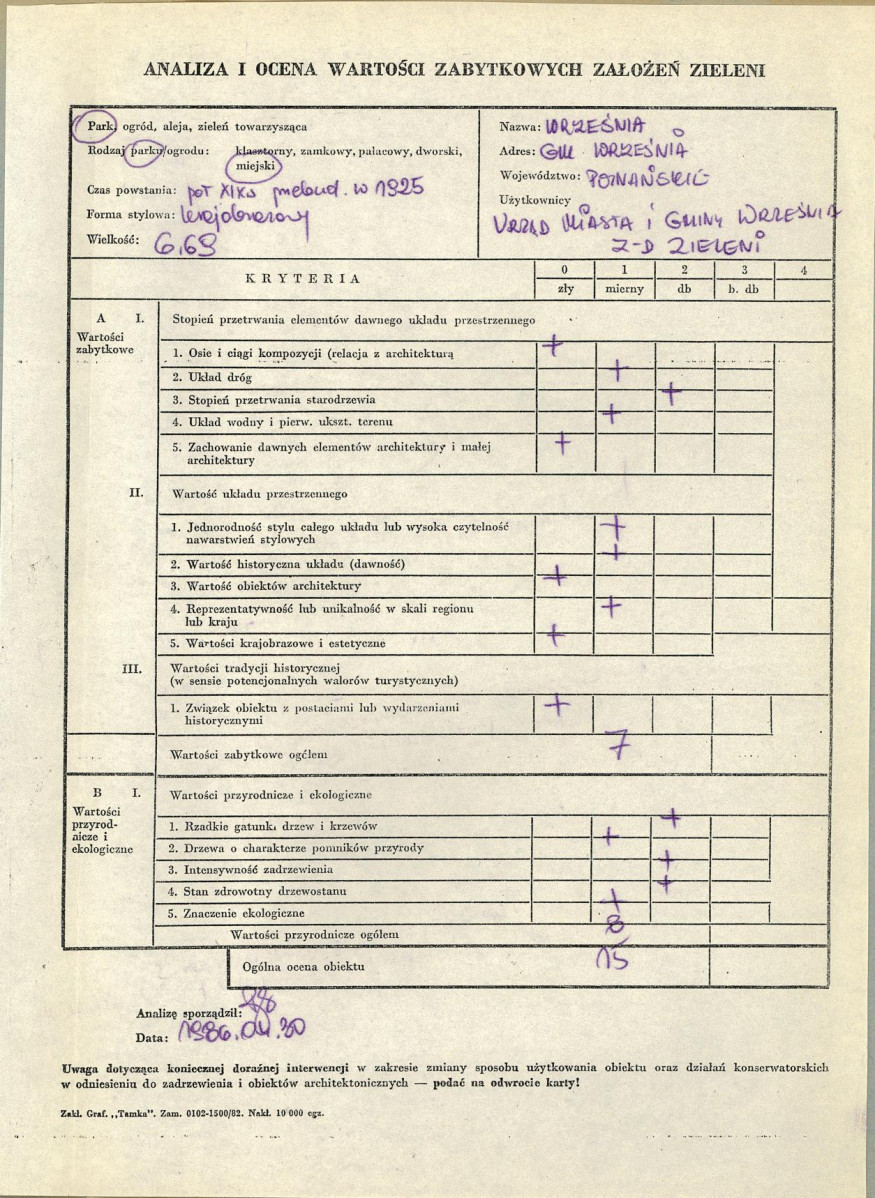 ANALIZA I OCENA WARTOŚCI ZABYTKOWYCH ZAŁOŻEŃ ZIELENI
Park, ogród, aleja, zieleń towarzysząca
Rodzaj parku/ogrodu: klasztorny, zamkowy, pałacowy, dworski,
miejski
Czas powstania: poł XIXw przebud. w 1925
Forma stylowa: krajobrazowy
Wielkość: 6,69
Nazwa: WRZEŚNIA
Adres: GM WRZEŚNIA
Województwo: POZNAŃSKIE
Użytkownicy
URZĄD MIASTA i GMINY WRZEŚNIA
Z-D ZIELENI
KRYTERIA
0 1 2 3 4
zły mierny db b. db
A I. Stopień przetrwania elementów dawnego układu przestrzennego
Wartości
zabytkowe
1. Osie i ciągi kompozycji (relacja z architekturą +
2. Układ dróg +
3. Stopień przetrwania starodrzewia +
4. Układ wodny i pierw. ukszt. terenu +
5. Zachowanie dawnych elementów architektury i małej +
architektury
II. Wartość układu przestrzennego
1. Jednorodność stylu całego układu lub wysoka czytelność +
nawarstwień stylowych
2. Wartość historyczna układu (dawność) +
3. Wartość obiektów architektury +
4. Reprezentatywność lub unikalność w skali regionu +
lub kraju
5. Wartości krajobrazowe i estetyczne +
III. Wartości tradycji historycznej
(w sensie potencjonalnych walorów turystycznych)
1. Związek obiektu z postaciami lub wydarzeniami +
historycznymi
Wartości zabytkowe ogółem 7
B I. Wartości przyrodnicze i ekologiczne
Wartości
przyrod-
nicze i
ekologiczne
1. Rzadkie gatunki drzew i krzewów +
2. Drzewa o charakterze pomników przyrody +
3. Intensywność zadrzewienia +
4. Stan zdrowotny drzewostanu +
5. Znaczenie ekologiczne +
Wartości przyrodnicze ogółem 8
Ogólna ocena obiektu 15
Analizę sporządził:
Data: 1986.04.30
Uwaga dotycząca koniecznej doraźnej interwencji w zakresie zmiany sposobu użytkowania obiektu oraz działań konserwatorskich
w odniesieniu do zadrzewienia i obiektów architektonicznych — podać na odwrocie karty!
Zakł. Graf. „Tamka”. Zam. 0102-1500/82. Nakł. 10 000 egz.